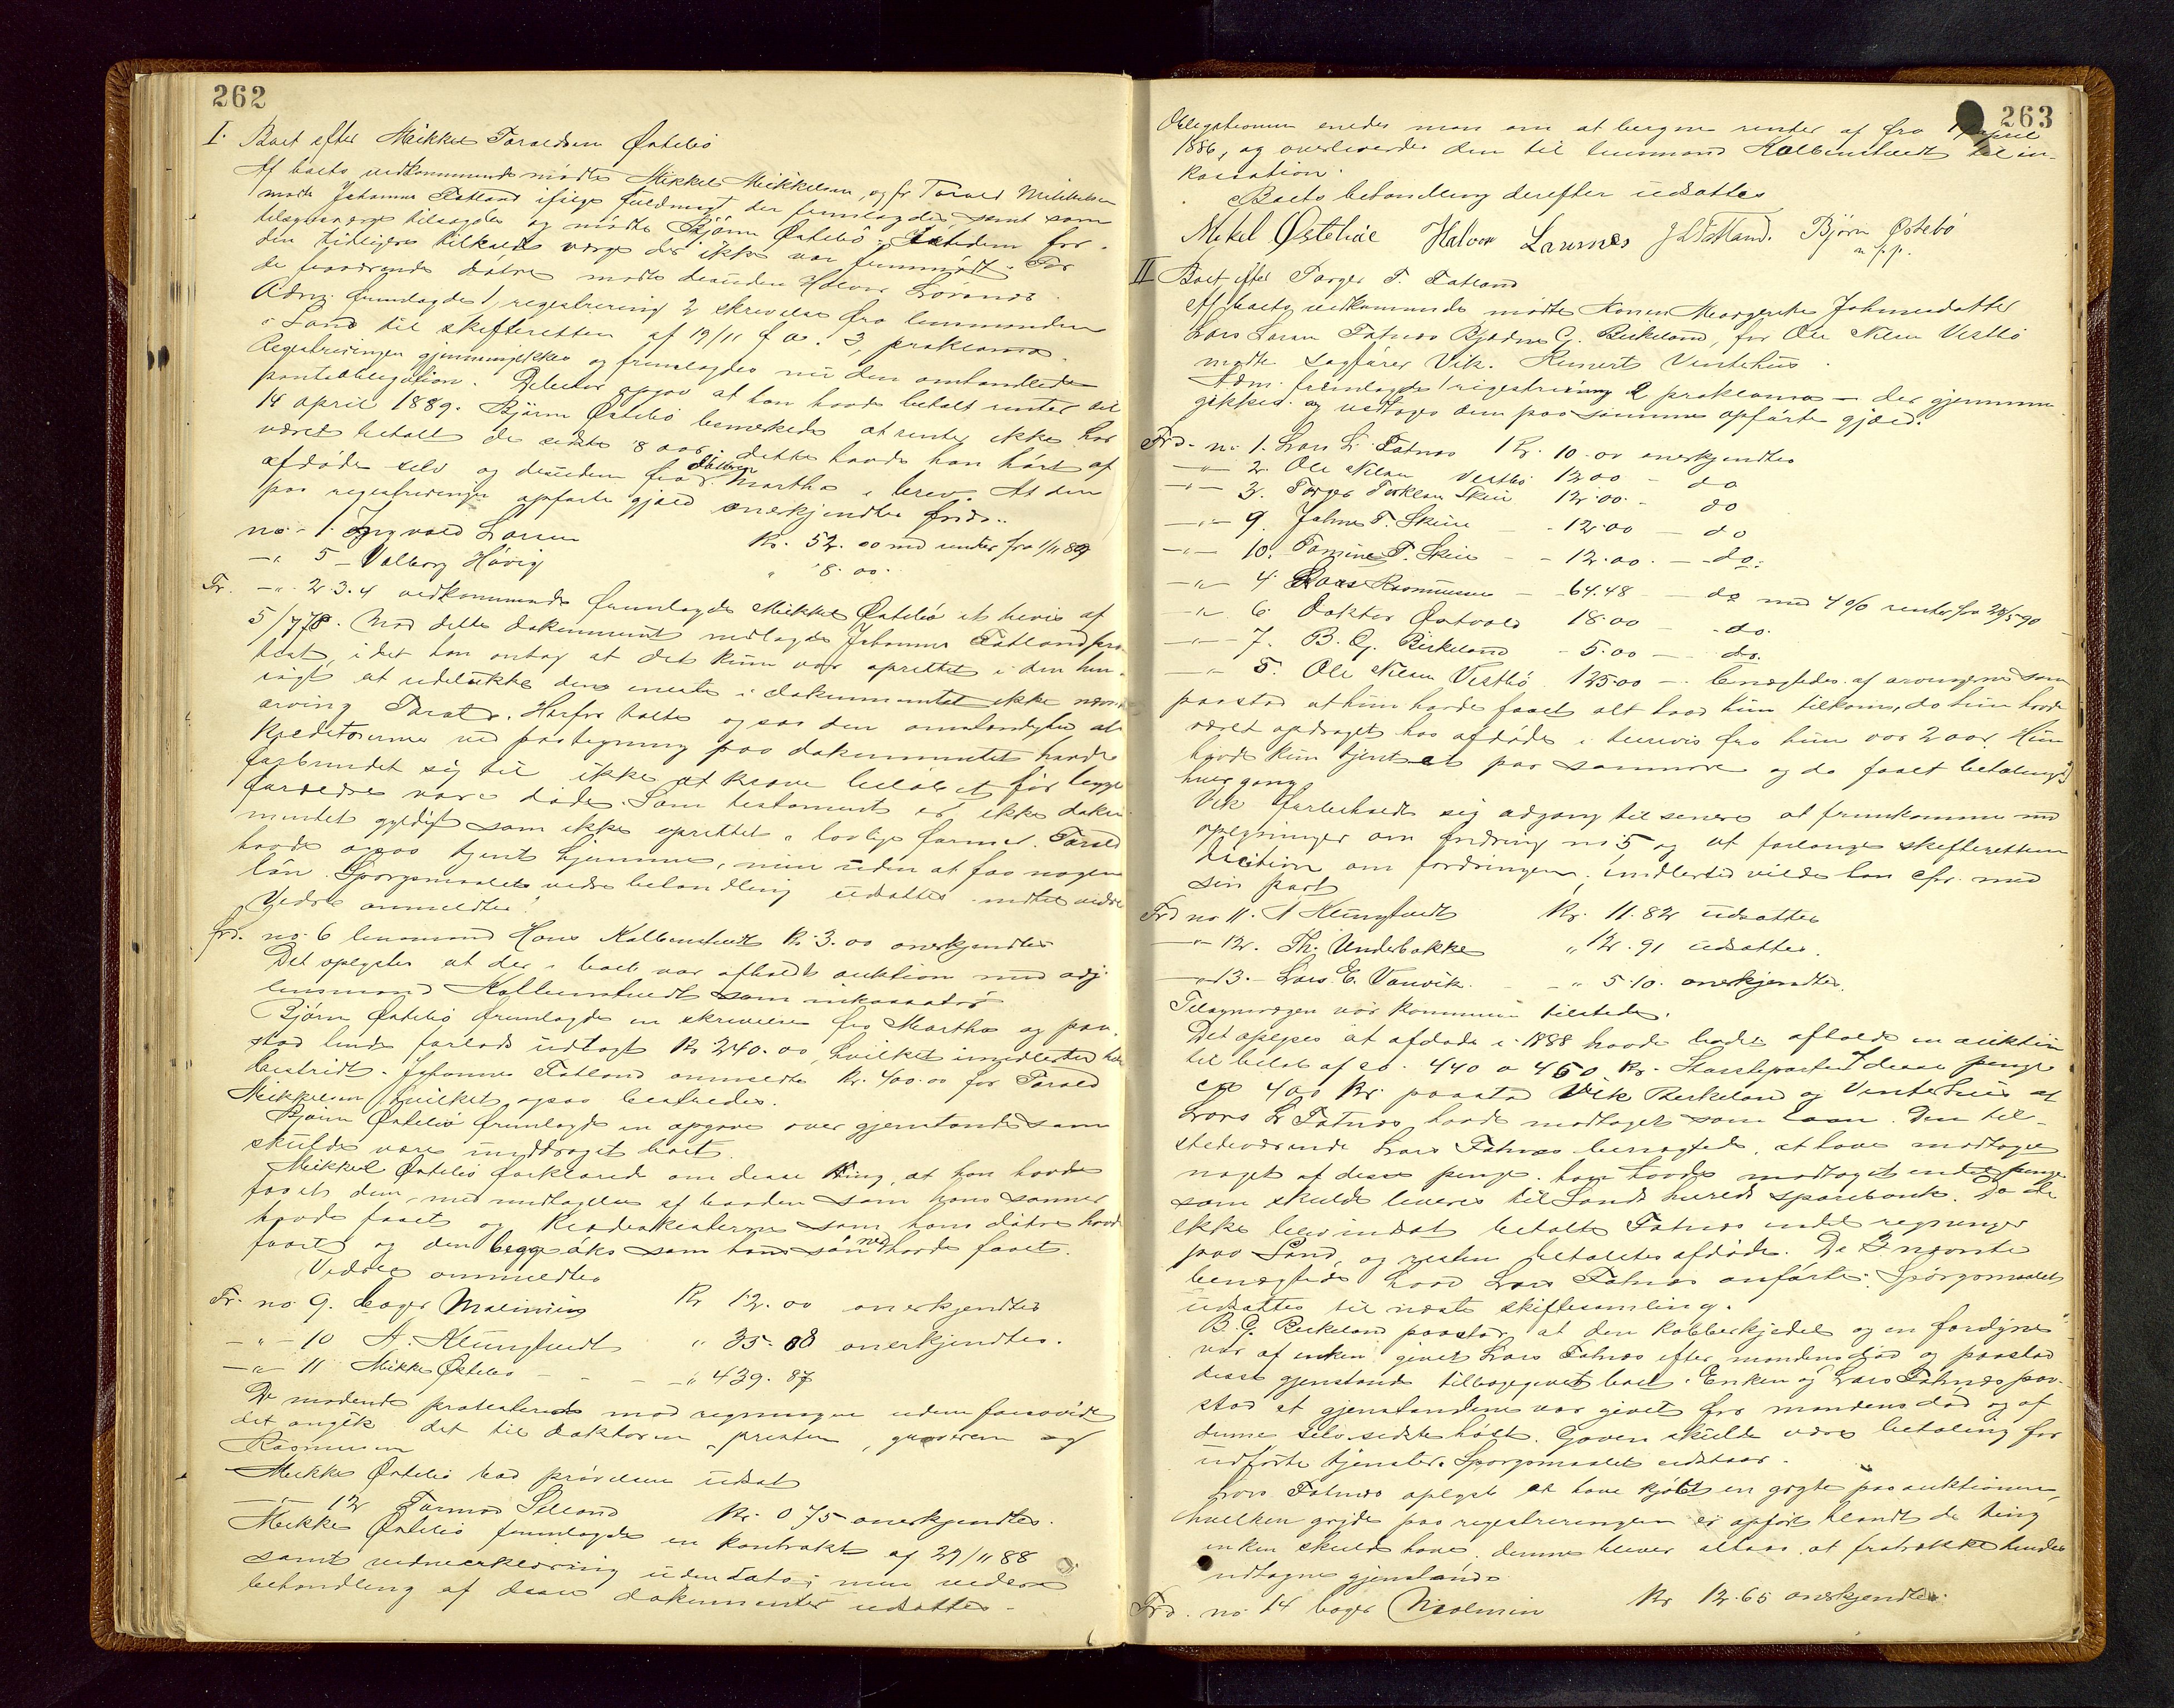 262
I. Boet efter Mikkel Taraldsen Østebö
Af boets vedkommende mødte Mikkel Mikkelsen, og for Tarald Mikkelsen
mødte Johannes Fatland ifølge fuldmagt der fremlagdes samt som
tilsynsværge tilsagdes og mødte Bjørn Østebö. Istedem for
den tidligere tilkaldte værge der ikke var fremmødt. For
de fraværende døtre mødte desuden Halvor
Adm. fremlagde 1, registrering 2 skrivelse fra lensmanden
i Sand til skifteretten af 19/11 f. a. 3, proklama.
Registreringen gjennemgikkes og fremlagdes nu den omhandlede
pantobligation. Debitor opgav at han havde betalt renter til
14 april 1889. Bjørn Østebö bemerkede at renter ikke har
været betalt de sidste 8 aar, dette havde han hört af
afdøde selv og desuden fra datteren Martha i brev. Af den
paa registreringen opførte gjæld anerkjendtes frds.
no. 1. Ingvald Larsen Kr. 52.00 med renter fra 1/11 89
-"- 5 - Valborg Hövig " 8.00.
Fr. -"- 2 3. 4 vedkommende fremlagde Mikkel Östebö et bevis af
5/7 78. Mod dette dokument nedlagde Johannes Fatland pro
test, i det han antog at det kun var oprettet i den hen-
sigt at udelukke den eneste i dokumentet ikke nævnte
arving Tarald. Herfor talte ogsaa den omstændighed at
kreditorerne ved paategning paa dokumentet havde
forbundet sig til ikke at kræve belöbet för begge
forældre vare døde. Som testament er ikke doku-
mentet gyldigt som ikke oprettet i lovlige former. Tarald
havde ogsaa tjent hjemme, men uden at faa nogen
lön. Spørgsmaalets vidre behandling udsattes indtil vidre
Vidre anmeldtes:
frd. no. 6 lensmand Hans Kolbenstvedt Kr. 3.00 anerkjendtes
Det oplystes at der i boet var afholdt auktion med adj.
lensmand Kolbenstvedt som inkassator
Bjørn Østebö fremlagde en skrivelse fra Martha og paa-
stod hende forlods udlagt Kr 240.00, hvilket imidlertid blev
bestridt. Johannes Fatland anmeldte Kr. 400.00 for Tarald
Mikkelsen hvilket ogsaa bestredes.
Bjørn Østebö fremlagde en opgave over gjenstande som
skulde være unddraget boet.
Mikkel Østebö forklarede om disse ting, at han havde
faaet dem, med undtagelse af baaden som hans sønner
havde faaet og som hans døtre havde
faaet og den begge øks som hans sön havde faaet.
Vidre anmeldtes
Fr. no 9. bager Malmin Kr 12.00 anerkjendtes
-"- 10 A. Klungtvedt " 35.08 anerkjendtes.
-"- 11 Mikkel Østebö - - -" 439.87
De mødende protesterede mod regningen uden forsaavidt
det angik det til doktoren, presten, og
Rasmussen
Mikkel Østebö bad prøvelsen udsat
-"- 12 Tormod Selland Kr. 0 75 anerkjendtes.
Mikkel Østebö fremlagde en kontrakt af 29/11 88
samt vidneerklæring uden dato; men videre
behandling af disse dokumenter udsattes.-
263
Obligationen enedes man om at beregne renter af fra 14 april
1886, og overleverdes den til lensmand Kolbenstvedt til in-
kassation.
Boets behandling derefter udsattes
Mekel Østebøe Halvor J Fatland. Bjørn Østebö
m. p. p.
II Boet efter Torger T. Fatland
Af boets vedkommende mödte Konen Margrethe Johnsdatter
Lars Larsen Fatnæs Bjadne G. Birkeland, for Ole Nilsen Vestbö
mødte sagfører Vik. Reinert Vintehus.
Adm. fremlagde 1 registrering 2 proklama - der gjennem-
gikkes. og vedtoges den paa samme opførte gjæld.
Frd. no. 1. Lars L. Fatnæs Kr. 10.00 anerkjendtes
-"- 2. Ole Nilsen Vestbö 12.00 - do
-"- 3. Torger Torkelsen Skeie 12.00 - do
-"- 9. Johnes T. Skeie - - 12.00 - do
-"- 10. Tomine T. Skeie - - 12.00. - do.
-"- 4 Lars Rasmussen - 64.48 - do med 4 % renter fra 28/5 90
-"- 6. Doktor Østvold 18.00 - do.
-"- 7. B. G. Birkeland - 5.00 - do.
-"- 5. Ole Nilsen Vestbö 125.00 - benegtedes af arvingerne som
paastod at hun havde faaet alt hvad hun tilkom, da hun havde
været opdraget hos afdøde i huset fra hun var 2 aar. Hun
havde kun tjent et par sommre og da faaet betaling
hver gang.
Vik forbeholdt sig adgang til senere at fremkomme med
oplysninger om fordring no 5 og at forlange skifterettens
decision om fordringen; imidlertid vilde han cfr. med
sin part
Frd no 11. A Klungtvedt Kr. 11.82 udsattes
-"- 12. Th. Underbakke " 12.91 udsattes.
-"- 13. - Lars E. Vanvik - " 5.10. anerkjendtes.
Tilsynsværgen var kommen tilstede.
Det oplystes at afdøde i 1888 havde ladet afholde en auktion
til beløb af ca. 440 a 450 Kr. Størsteparten disse penge
ca 400 Kr paastod Vik Birkeland og Vintehus at
Lars L. Fatnæs havde modtaget som laan. Den til-
stedeværende Lars Fatnæs benegtede, at have modtaget
noget af disse penge. han havde modtaget endel penge
som skulde leveres til Sands herreds sparebank. Da de
ikke blev indsat betalte Fatnæs endel regninger
paa Sand, og resten betaltes afdøde. De 3 nævnte
benegtede hvad Lars Fatnæs anførte. Spørgsmaalet
udsattes til næste skiftesamling.
B. G. Birkeland paastod, at den kobberkjedel og en fordyne
var af enken givet Lars Fatnæs efter mandens død og paastod
disse gjenstande tilbagegivet boet. Enken og Lars Fatnæs paa-
stod at gjenstandene var givet før mandens död og af
denne selv sidste höst. Gaven skulde være betaling for
udførte tjenester. Spørgsmaalet udstaar.
Lars Fatnæs oplyste at have kjöbt en gryte paa auktionen,
hvilken gryde paa registreringen er opført blandt de ting
enken skulde have. denne bliver altsaa at fratrække hendes
udtagne gjenstande
Frd. no. 14 bager Malmin Kr 12.65 anerkjendtes.